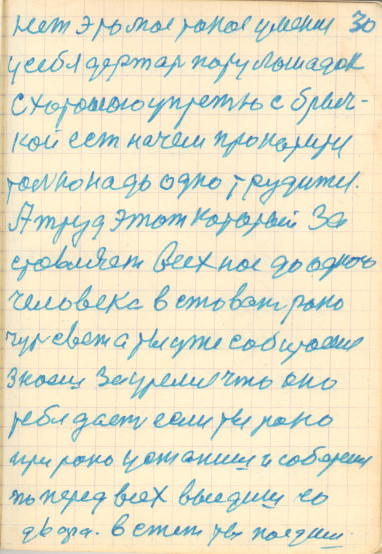 нет это мое такое умение 30
у себя держал пару лошадок
с хорошою упрежью с брыч-
кой ест на чем прокатит
только надо одно трудится.
А труд этот который за
ставляет всех нас до одного
человека встават рано
чут света ты уже
знаеш что оно
тебя дает если ты рано
при рано устаниш и
то перед всех выедиш со
двора. в степ ты поедиш.